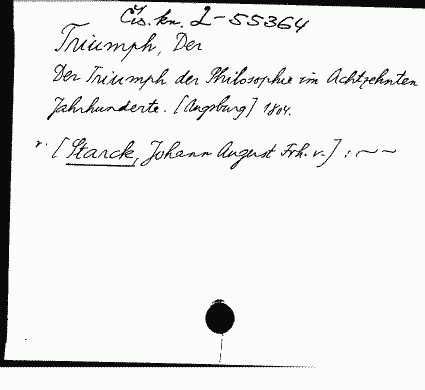 Čís. kn. 2-55364
Triumph, Der
Der Triumph der Philosophie im Achtzehnten
Jahrhunderte. [Augsburg] 1804.
v. [Starck, Johann August Frh. v.] : ~ ~